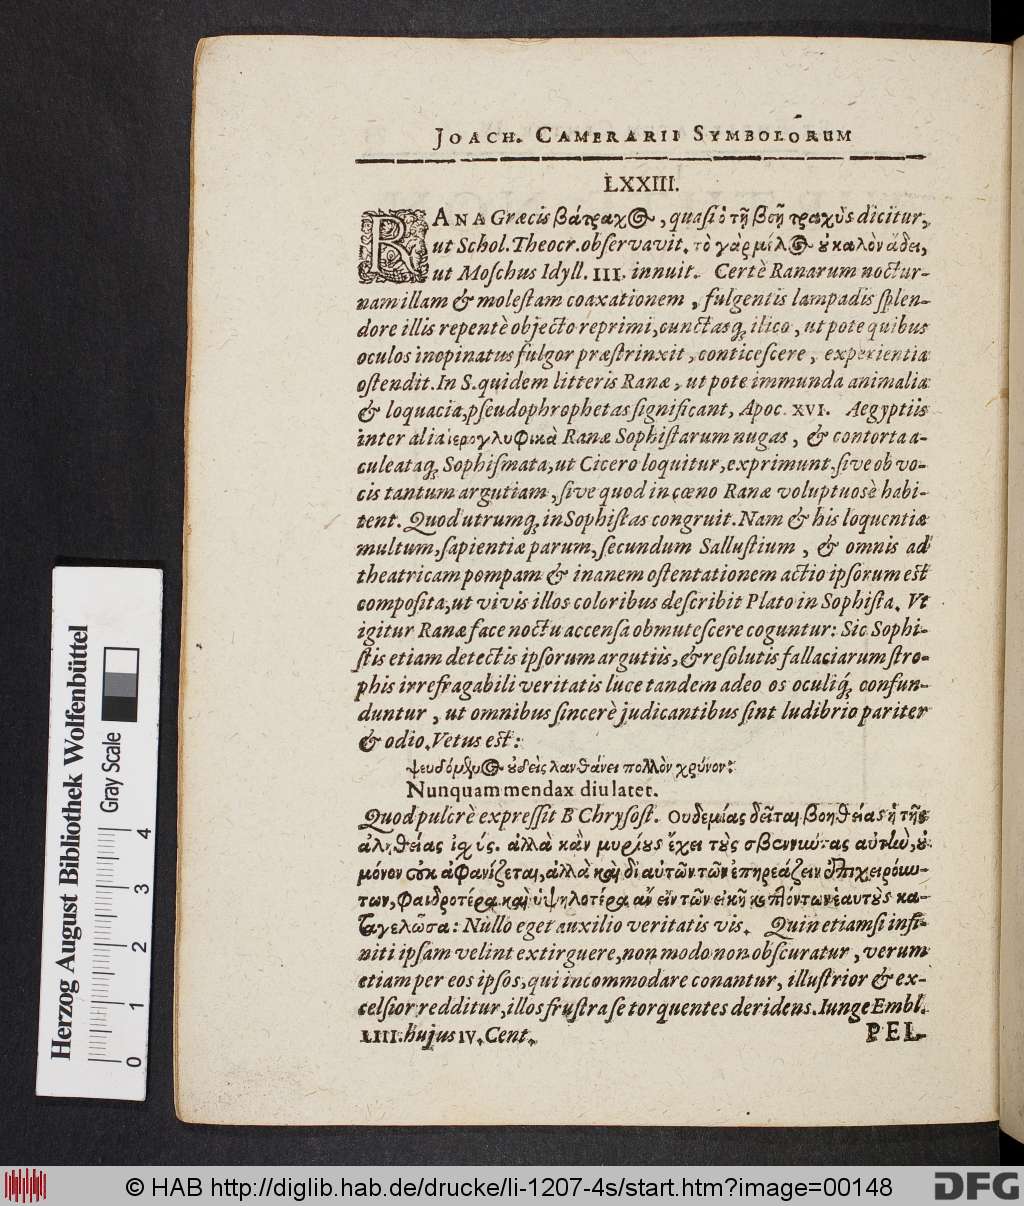 JOACH. CAMERARII SYMBOLORUM
LXXIII.
RANA Græcis βάτραχος, quasi ὁ τῇ βοῇ τραχὺς dicitur,
ut Schol. Theocr. observavit. τὸ γὰρ μέλος ȣ καλὸν ᾄδει,
ut Moschus Idyll. III. innuit. Certè Ranarum noctur-
nam illam & molestam coaxationem, fulgentis lampadis splen-
dore illis repentè objecto reprimi, cunctasq; ilico, ut pote quibus
oculos inopinatus fulgor præstrinxit, conticescere, experientia
ostendit. In S. quidem litteris Ranæ, ut pote immunda animalia
& loquacia, pseudophrophetas significant, Apoc. XVI. Aegyptiis
inter alia ἱερογλυφικὰ Ranæ Sophistarum nugas, & contorta a-
culeataq; Sophismata, ut Cicero loquitur, exprimunt, sive ob vo-
cis tantum argutiam, sive quod in cœno Ranæ voluptuosè habi-
tent. Quod utrumq; in Sophistas congruit. Nam & his loquentiæ
multum, sapientiæ parum, secundum Sallustium, & omnis ad
theatricam pompam & inanem ostentationem actio ipsorum est
composita, ut vivis illos coloribus describit Plato in Sophista. Vt
igitur Ranæ face noctu accensa obmutescere coguntur: Sic Sophi-
stis etiam detectis ipsorum argutiis, & resolutis fallaciarum stro-
phis irrefragabili veritatis luce tandem adeo os oculiq; confun-
duntur, ut omnibus sincerè judicantibus sint ludibrio pariter
& odio. Vetus est:
ψευδόμενος ȣδεὶς λανθάνει πολλὸν χρόνον:
Nunquam mendax diu latet.
Quod pulcrè expressit B Chrysost. Ουδεμίας δεῖται βοηθείας ἡ τῆς
ἀληθείας ἰχύς. ἀλλὰ κἂν μυρίȣς ἔχει τȣ̀ς σβεννιώτας αὐτιὼ, ȣ
μόνον οὐκ ἀφανίζεται, ἀλλὰ καὶ δι αὐτῶν τῶν ἐπηρεάζειν ἐπιχειρόιω-
των, φαιδροτέρα καὶ ὑψηλοτέρα ἄν εἴη τῶν εἰκῆ κοπτόντων ἑαυτȣ̀ς κα-
ταγελῶσα: Nullo eget auxilio veritatis vis. Quin etiamsi infi-
niti ipsam velint extirguere, non modo non obscuratur, verum
etiam per eos ipsos, qui incommodare conantur, illustrior & ex-
celsior redditur, illos frustra se torquentes deridens. Iunge Embl.
LIII. hujus IV. Cent.
PEL-
Herzog August Bibliothek Wolfenbüttel
Gray Scale
0 1 2 3 4
© HAB http://diglib.hab.de/drucke/li-1207-4s/start.htm?image=00148
DFG